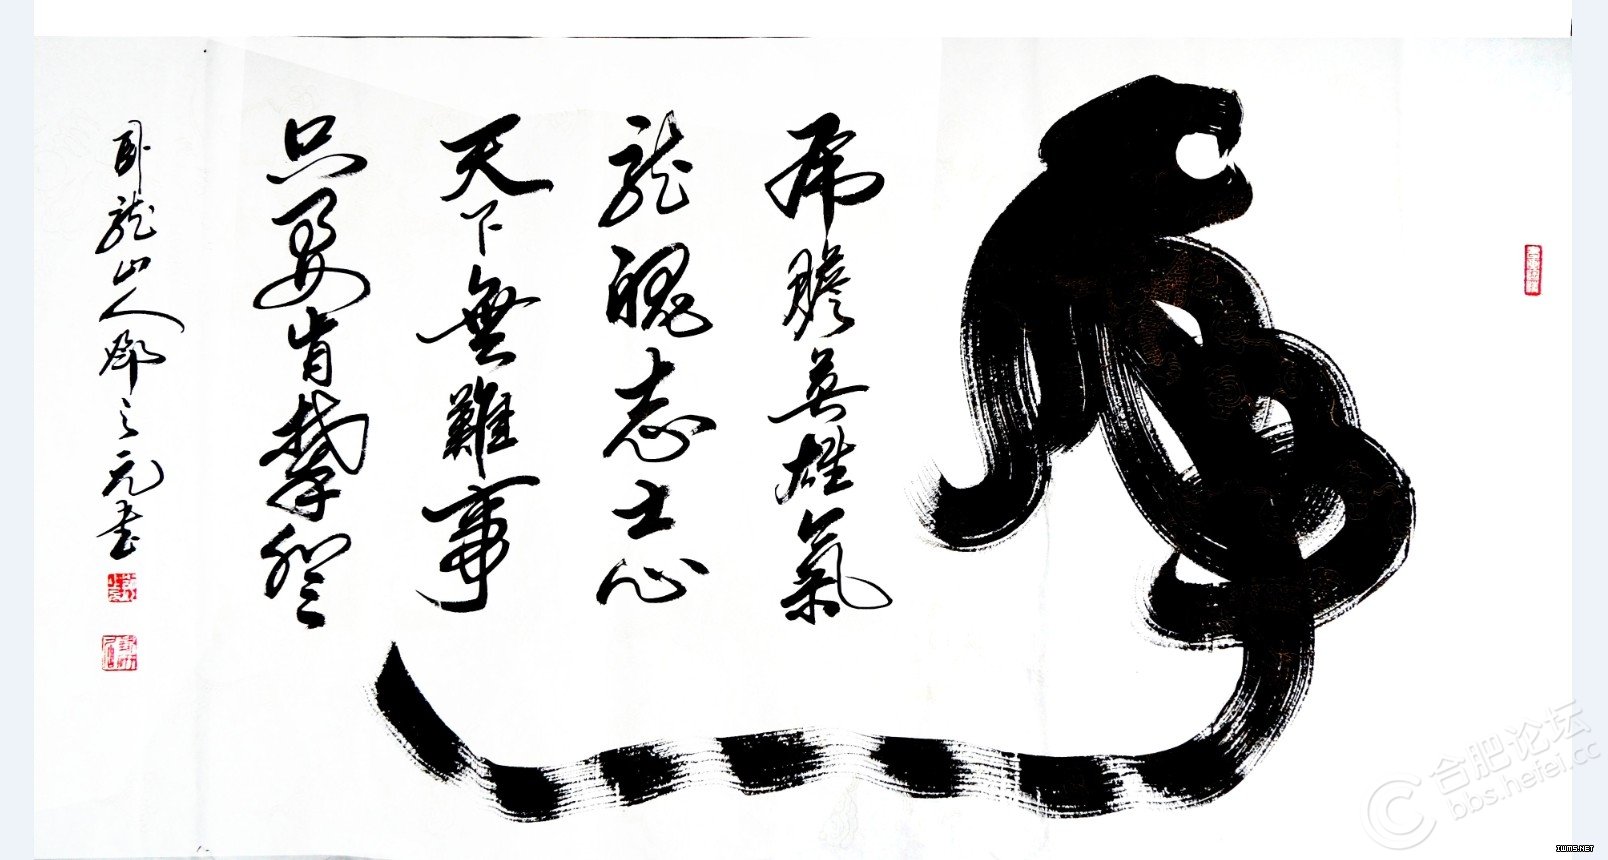 虎膽英雄氣
龍魂志士心
天下無難事
只要肯攀登
卧龍山人鄭之元書
合肥论坛
bbs.hefei.cc
IWMS.NET